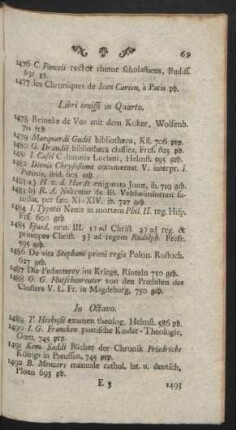 69
1476 C. Funccii rector rhetor scholasticus, Budiss.
631 pb.
1477 les Chroniques de Jean Carion, à Paris pb.
Libri omissi in Quarto.
1478 Reineke de Vos mit dem Koker, Wolfenb.
711 frb
1479 Marquardi Gudii bibliotheca, Kil. 706 prp.
1480 G. Draudii bibliotheca classica, Frf. 625 pb.
1481 I. Casel C alumnis Luciani, Helmst. 595 geb.
1482 Dionis Chrysostomi commentat. V. interpr. I.
ibid. 601 geb.
1483 a) H. v. d. Hardt ænigmata Jonæ, ib. 719 geb.
b) H. A. d. in
per sæc. XI-XIV. ib. 727 geb.
1484 I. Typotii Nenia in mortem Phil. II. reg. Hisp.
Frf. 600 geb
1485 orat. III. 1) ad Christ 2) ad reg. &
Principes Christ. 3) ad regem Rudolph. Frofr.
595 geb.
1486 De vita Stephani primi regis Polon. Rostoch.
627 geb.
1487 Die Pedanterey im Kriege, Rinteln 750 geb.
1488 G. G. von den Præbsten des
Closters V. L. Fr. in Magdeburg, 750 geb.
In Octavo.
1489 T. Heshusii examen theolog. Helmst. 586 pb.
1490 I. G. Francken poetische Kinder-Theologie,
745 prp.
1491 Kem. Saddi Bücher der Chronik Friedrichs
Königs in Preussen, 745 prp.
1492 B. Menzers manuale cathol. lat. u. deutsch,
Ploen 693 pb.
E 3
1493